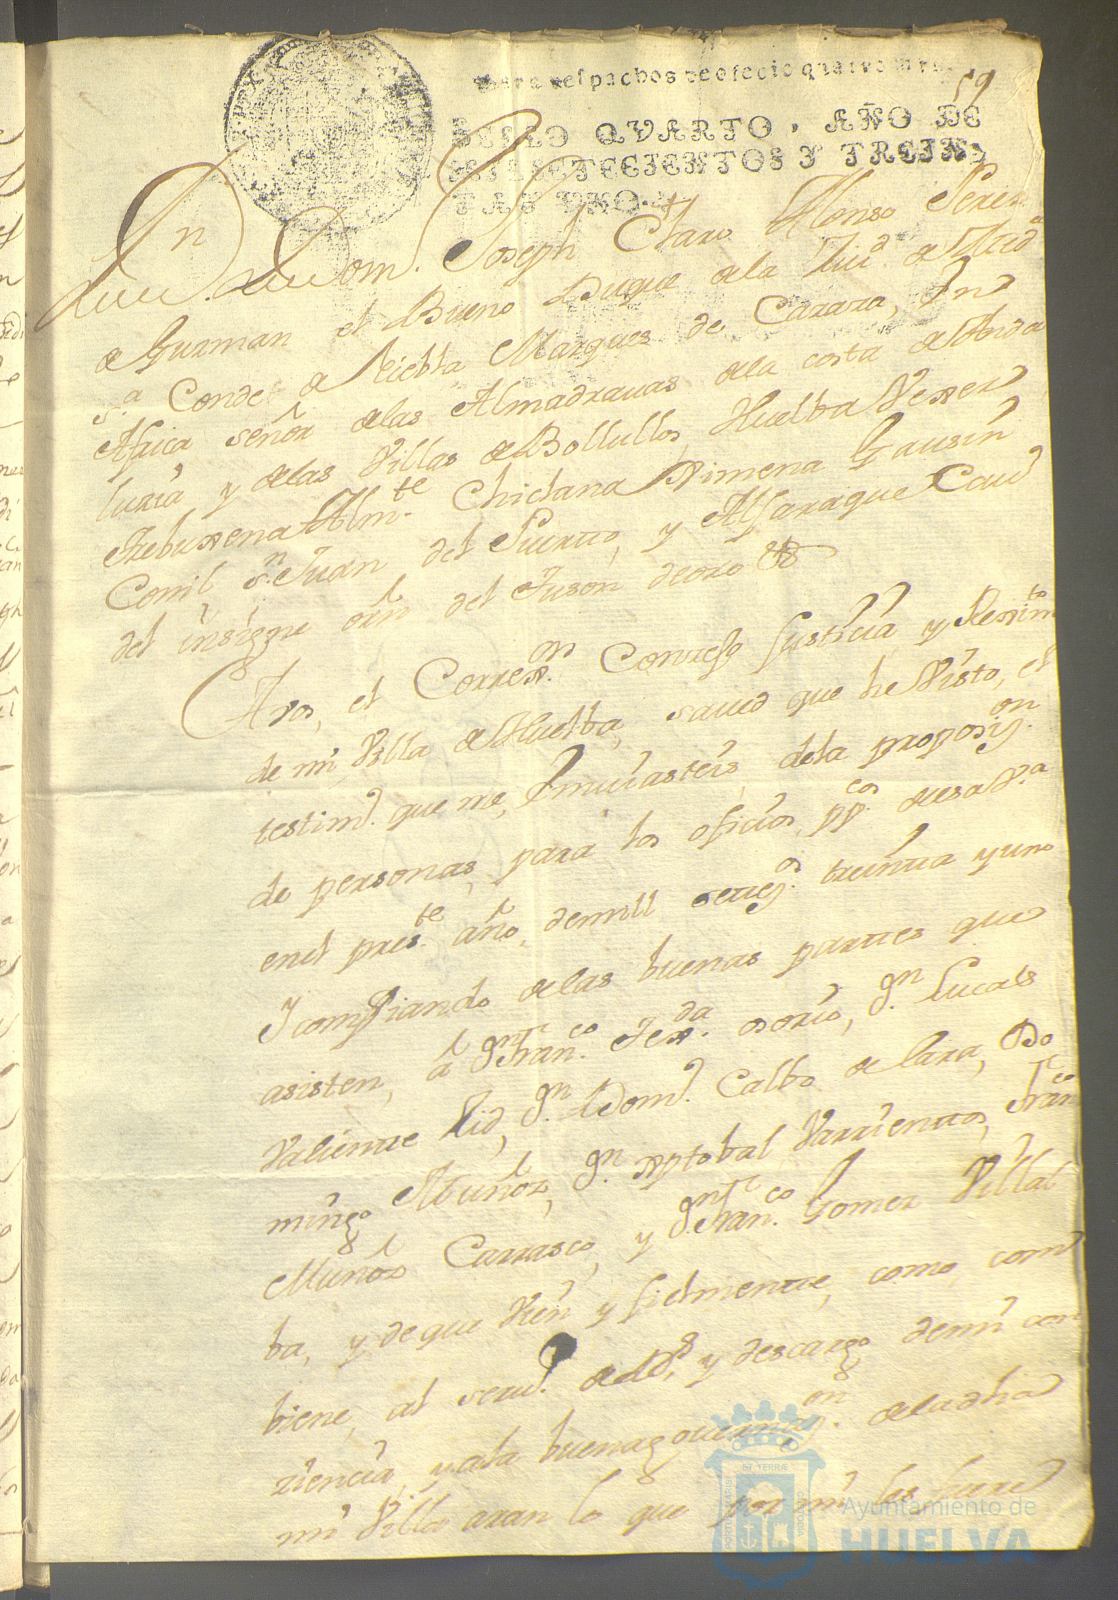 para despachos de oficio quatro mrs.
59
SELLO QVARTO, AÑO DE
MIL SETECIENTOS Y TREIN-
TA Y VNO.
Dn. Dom. Joseph Claro Alonso Perez
de Guzman el Bueno Duque de la Ciud de Med
s.a Conde de Niebla Marques de Cazaza, En
Africa señor de las Almadravas de la costa de Anda
luzia y de las Villas de Bollullos Huelba Vexer
Trebuxena Alm.te Chiclana Ximena Gausin
Conil Sn Juan del Puerto, y Alfaraque Cavo
del insigne orn del Tuson de oro &
A vos, el Correx.or Concejo Justicia y Rexim.to
de mi Villa de Huelba, saved que he visto, el
testim.o que me, Imviasteis, de la proposiz.on
de personas, para los oficios pp.cos de esa V.a
en el pres.te año, de mill setez.os treinta y uno
Y confiando de las buenas partes que
asisten, a Dn Fran.co Tex.da osorio, Dn Lucas
Valiente Lid, Dn Dom.o Calbo de Lara, Do
mingo Muñoz, Dn Xptobal Varrientos, Fran.co
Muñoz Carrasco, y Dn Fran.co Gomez Villal
ba, y de que Vien y fielmente, como com
biene, al serv.o de Ds, y descargo de mi con
ziencia, y a la buena governaz.on de la dha
mi Villa aran lo que por mi les fuere
EST TERRAE
Ayuntamiento de
HUELVA